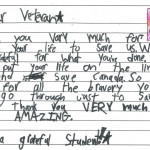 r Veteran
you Very much for
your life to save us. W
for what you done,
put your life on the lin
Save Canada. So
for all the bravery yo
through Just to Sav
Thank you VERY much
AMAZING.
a grateful Student